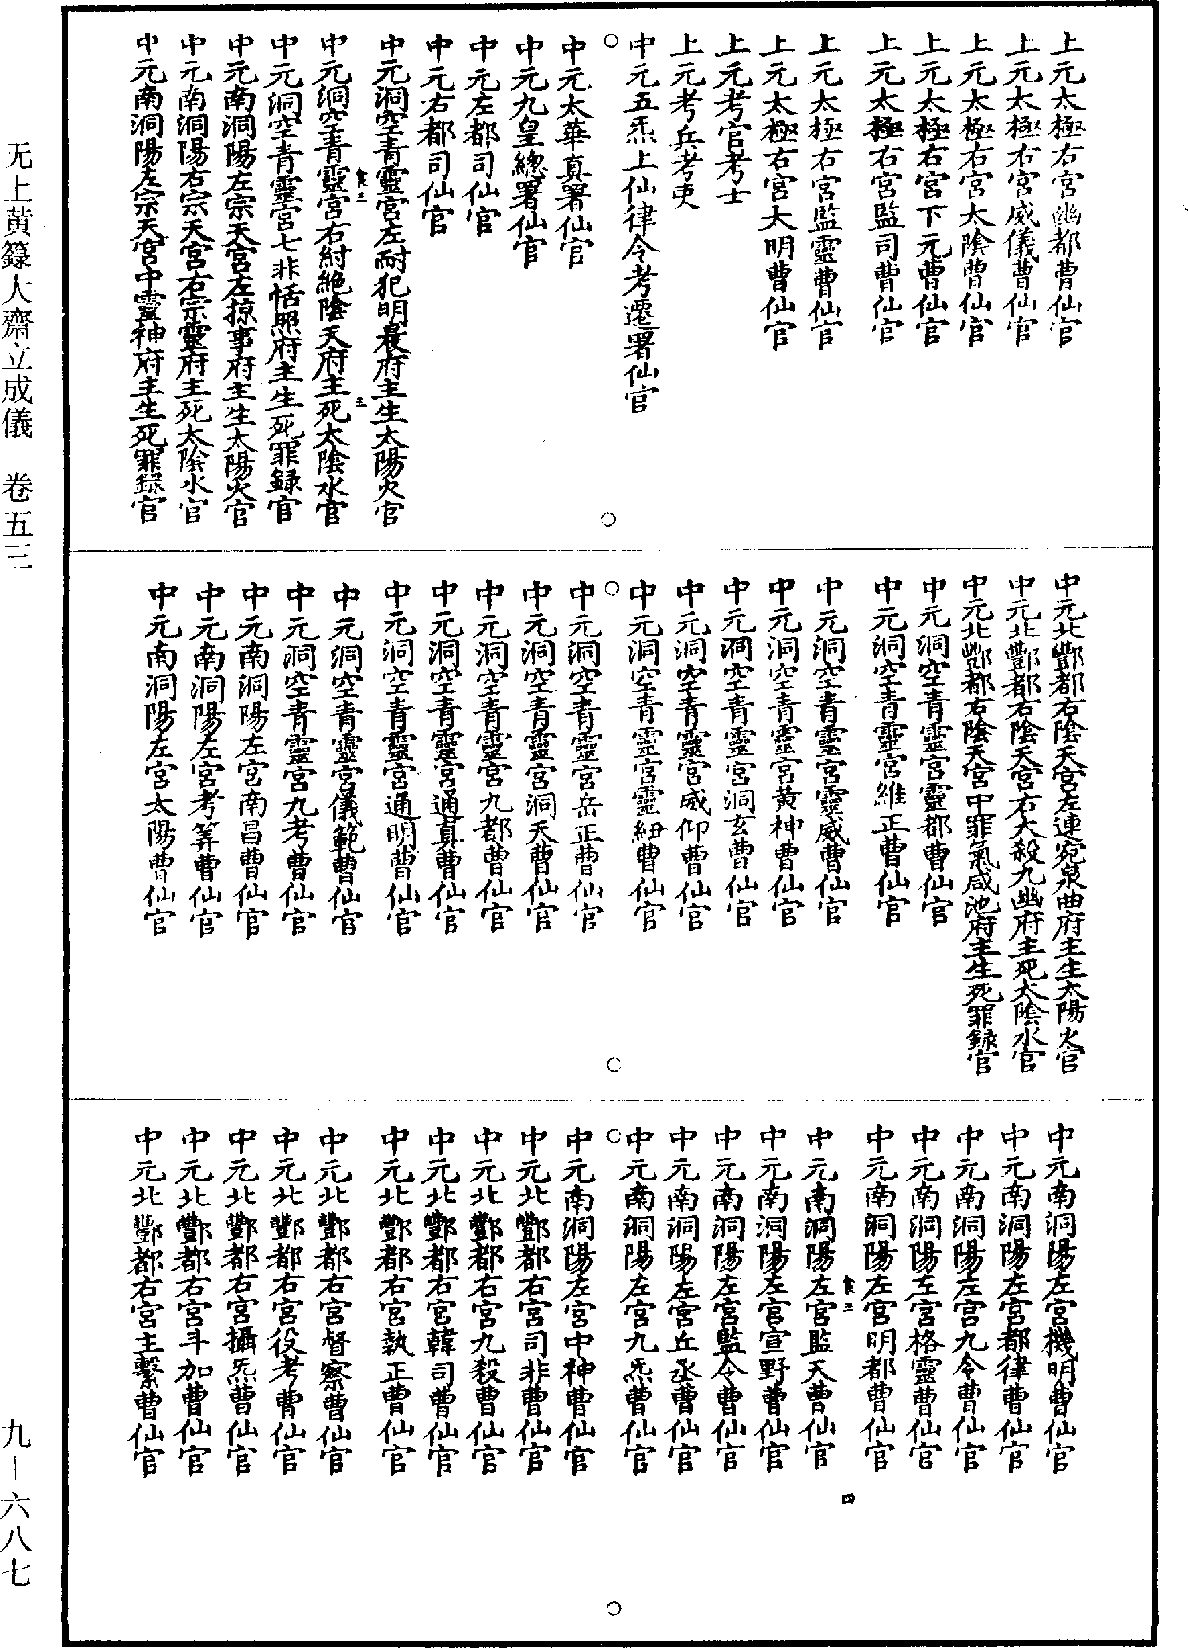 上元太極右宮幽都曹仙官
上元太極右宮威儀曹仙官
上元太極右宮太陰曹仙官
上元太極右宮下元曹仙官
上元太極右宮監司曹仙官
上元太極右宮監靈曹仙官
上元太極右宮大明曹仙官
上元考官考士
上元考兵考吏
中元五炁上仙律令考遷署仙官
中元太華真署仙官
中元九皇總署仙官
中元左都司仙官
中元右都司仙官
中元洞空青靈宮左耐犯明晨府主生太陽火官
中元洞空青靈宮右紂絕陰天府主死太陰水官
中元洞空青靈宮七非恬照府主生死罪録官
中元南洞陽左宗天宮左掠事府主生太陽火官
中元南洞陽右宗天宮右宗靈府主死太陰水官
中元南洞陽左宗天宮中靈神府主生死罪録官
中元北酆都右陰天宮左連宛泉曲府主生太陽火官
中元北酆都右陰天宮右大殺九幽府主死太陰水官
中元北酆都右陰天宮中罪氣咸池府主生死罪録官
中元洞空青靈宮靈都曹仙官
中元洞空青靈宮維正曹仙官
中元洞空青靈宮靈威曹仙官
中元洞空青靈宮黄神曹仙官
中元洞空青靈宮洞玄曹仙官
中元洞空青靈宮威仰曹仙官
中元洞空青靈宮靈紐曹仙官
中元洞空青靈宮岳正曹仙官
中元洞空青靈宮洞天曹仙官
中元洞空青靈宮九都曹仙官
中元洞空青靈宮通真曹仙官
中元洞空青靈宮通明曹仙官
中元洞空青靈宮儀範曹仙官
中元洞空青靈宮九考曹仙官
中元南洞陽左宮南昌曹仙官
中元南洞陽左宮考筭曹仙官
中元南洞陽左宮太陽曹仙官
中元南洞陽左宮機明曹仙官
中元南洞陽左宮都律曹仙官
中元南洞陽左宮九令曹仙官
中元南洞陽左宮格靈曹仙官
中元南洞陽左宮明都曹仙官
中元南洞陽左宮監天曹仙官
中元南洞陽左宮宣野曹仙官
中元南洞陽左宮監令曹仙官
中元南洞陽左宮丘丞曹仙官
中元南洞陽左宮九炁曹仙官
中元南洞陽左宮中神曹仙官
中元北酆都右宮司非曹仙官
中元北酆都右宮九殺曹仙官
中元北酆都右宮韓司曹仙官
中元北酆都右宮執正曹仙官
中元北酆都右宮督察曹仙官
中元北酆都右宮役考曹仙官
中元北酆都右宮攝炁曹仙官
中元北酆都右宮斗加曹仙官
中元北酆都右宮主繫曹仙官
四
无上黄籙大齋立成儀 卷五三
九—六八七